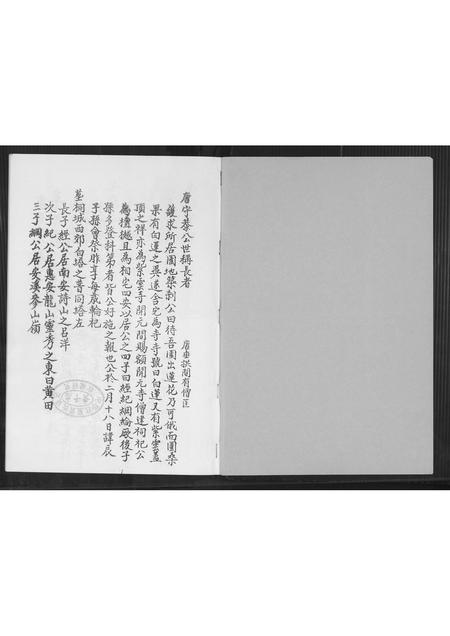 唐守恭公世稱長者
唐垂拱間有僧匡
護求所居園地築刹公曰待吾園出蓮花乃可俄而園桑
果有白蓮之異遂舍宅為寺寺號曰白蓮又有紫雲蓋
頂之祥亦為紫雲寺開元間賜額開元寺僧建祠祀公
為檀樾且為相宅四安以居公之四子曰經紀綱綸厥後子
孫多登科第者皆公好施之報也公於二月十八日諱辰
子孫會祭胙享每歲輪祀
墓桐城西郊白塔之普同塔左
長子經公居南安詩山之呂洋
次子紀公居惠安龍山靈秀之東曰黄田
三子綱公居安溪參山嶺